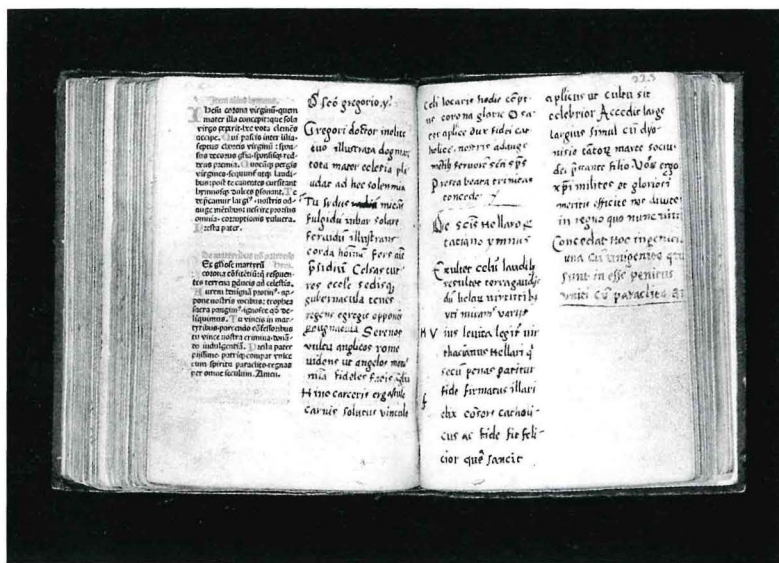 Item alius hymnus.
Iesu corona virginū·quem
mater illa concepit:que sola
virgo peperit·hec vota clemēs
accipe. Qui pascis inter lilia
septus choreis virginū: spon-
sus decorus glia·sponsisq3 red-
dens premia. Quocūq3 pergis
virgines·sequunť atq3 laudi-
bus: post te canentes cursitant
hymnosq3 dulces psonant. Te
dep̄camur largiꝰ·nostris ad-
auge mētibus: nescire prorsus
omnia·corruptionis vulnera.
Presta pater.
Ex gl̄iose martyrū
corona cōfitētiū: q̄ respuen-
tes terrena pducis ad celestia.
Aurem benignā protinꝰ·ap-
pone nostris vocibus: trophea
sacra pangimꝰ·ignosce qđ de-
liquimus. Tu vincis in mar-
tyribus·parcendo cōfessoribus
tu vince nostra crimina·donā-
do indulgentiā. Presta pater
piissime·patriq3 compar vnice
cum spiritu paraclito·regnas
per omne seculum. Amen.
D̄ scō gregorio. yꝰ
Gregori doctor inclite
quo illustrata dogmate
tota mater eclesia pla
udat ad hec solemnia
Tu sydus micās
fulgidū iubar solare
feruidū illustrans
corda hōīm fers aīe
psidiū Celsas cur
res ecclē sedisq3
gubernacula tenes
regens egregie opponis
ppugnacula Serenos
vultu anglicos rome
uidens ut angelos
Hinc carceris ergastulo
carnis solutus vinculo
223
Celi locaris hodie cōpt
ꝰ corona glorie O sa
cer aplice dux fidei ca
tholice. nostris adauge
mētib feruorē sc̄i sp̄s
Presta beata trinitas
concede
De scis Hellaro &
taciano ymnus
Exultet celū laudibꝰ
resultet terra gaudijs
dū
uti miram
H V ius leuita legit uir
thacianus Hellari q̄
secū penas patitur
fide firmatus illari
chori catholi-
cus ac fide fit feli
cior quē sancit
aplicus ut cultu sit
celebrior Accedit large
largius simul cū dyo-
nisio tātoq3 marco sociuſ
dei filio Vos ergo
xp̄i milites et gloriosi
meritis efficite nos diuites
in regno quo nunc
Concedat Hoc ingeniti
una cū unigenito qui
sunt in esse penitus
uniti cū paraclito